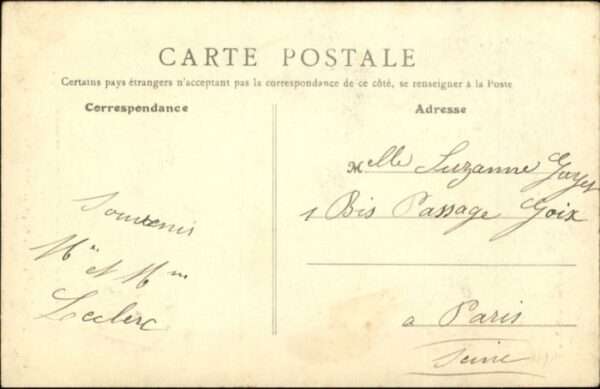 CARTE POSTALE
Certains pays étrangers n'acceptant pas la correspondance de ce côté, se renseigner à la Poste
Correspondance
Adresse
Souvenir
Mr et Mme
Leclerc
Melle Suzanne Guyet
1 Bis Passage Goix
a Paris
Seine